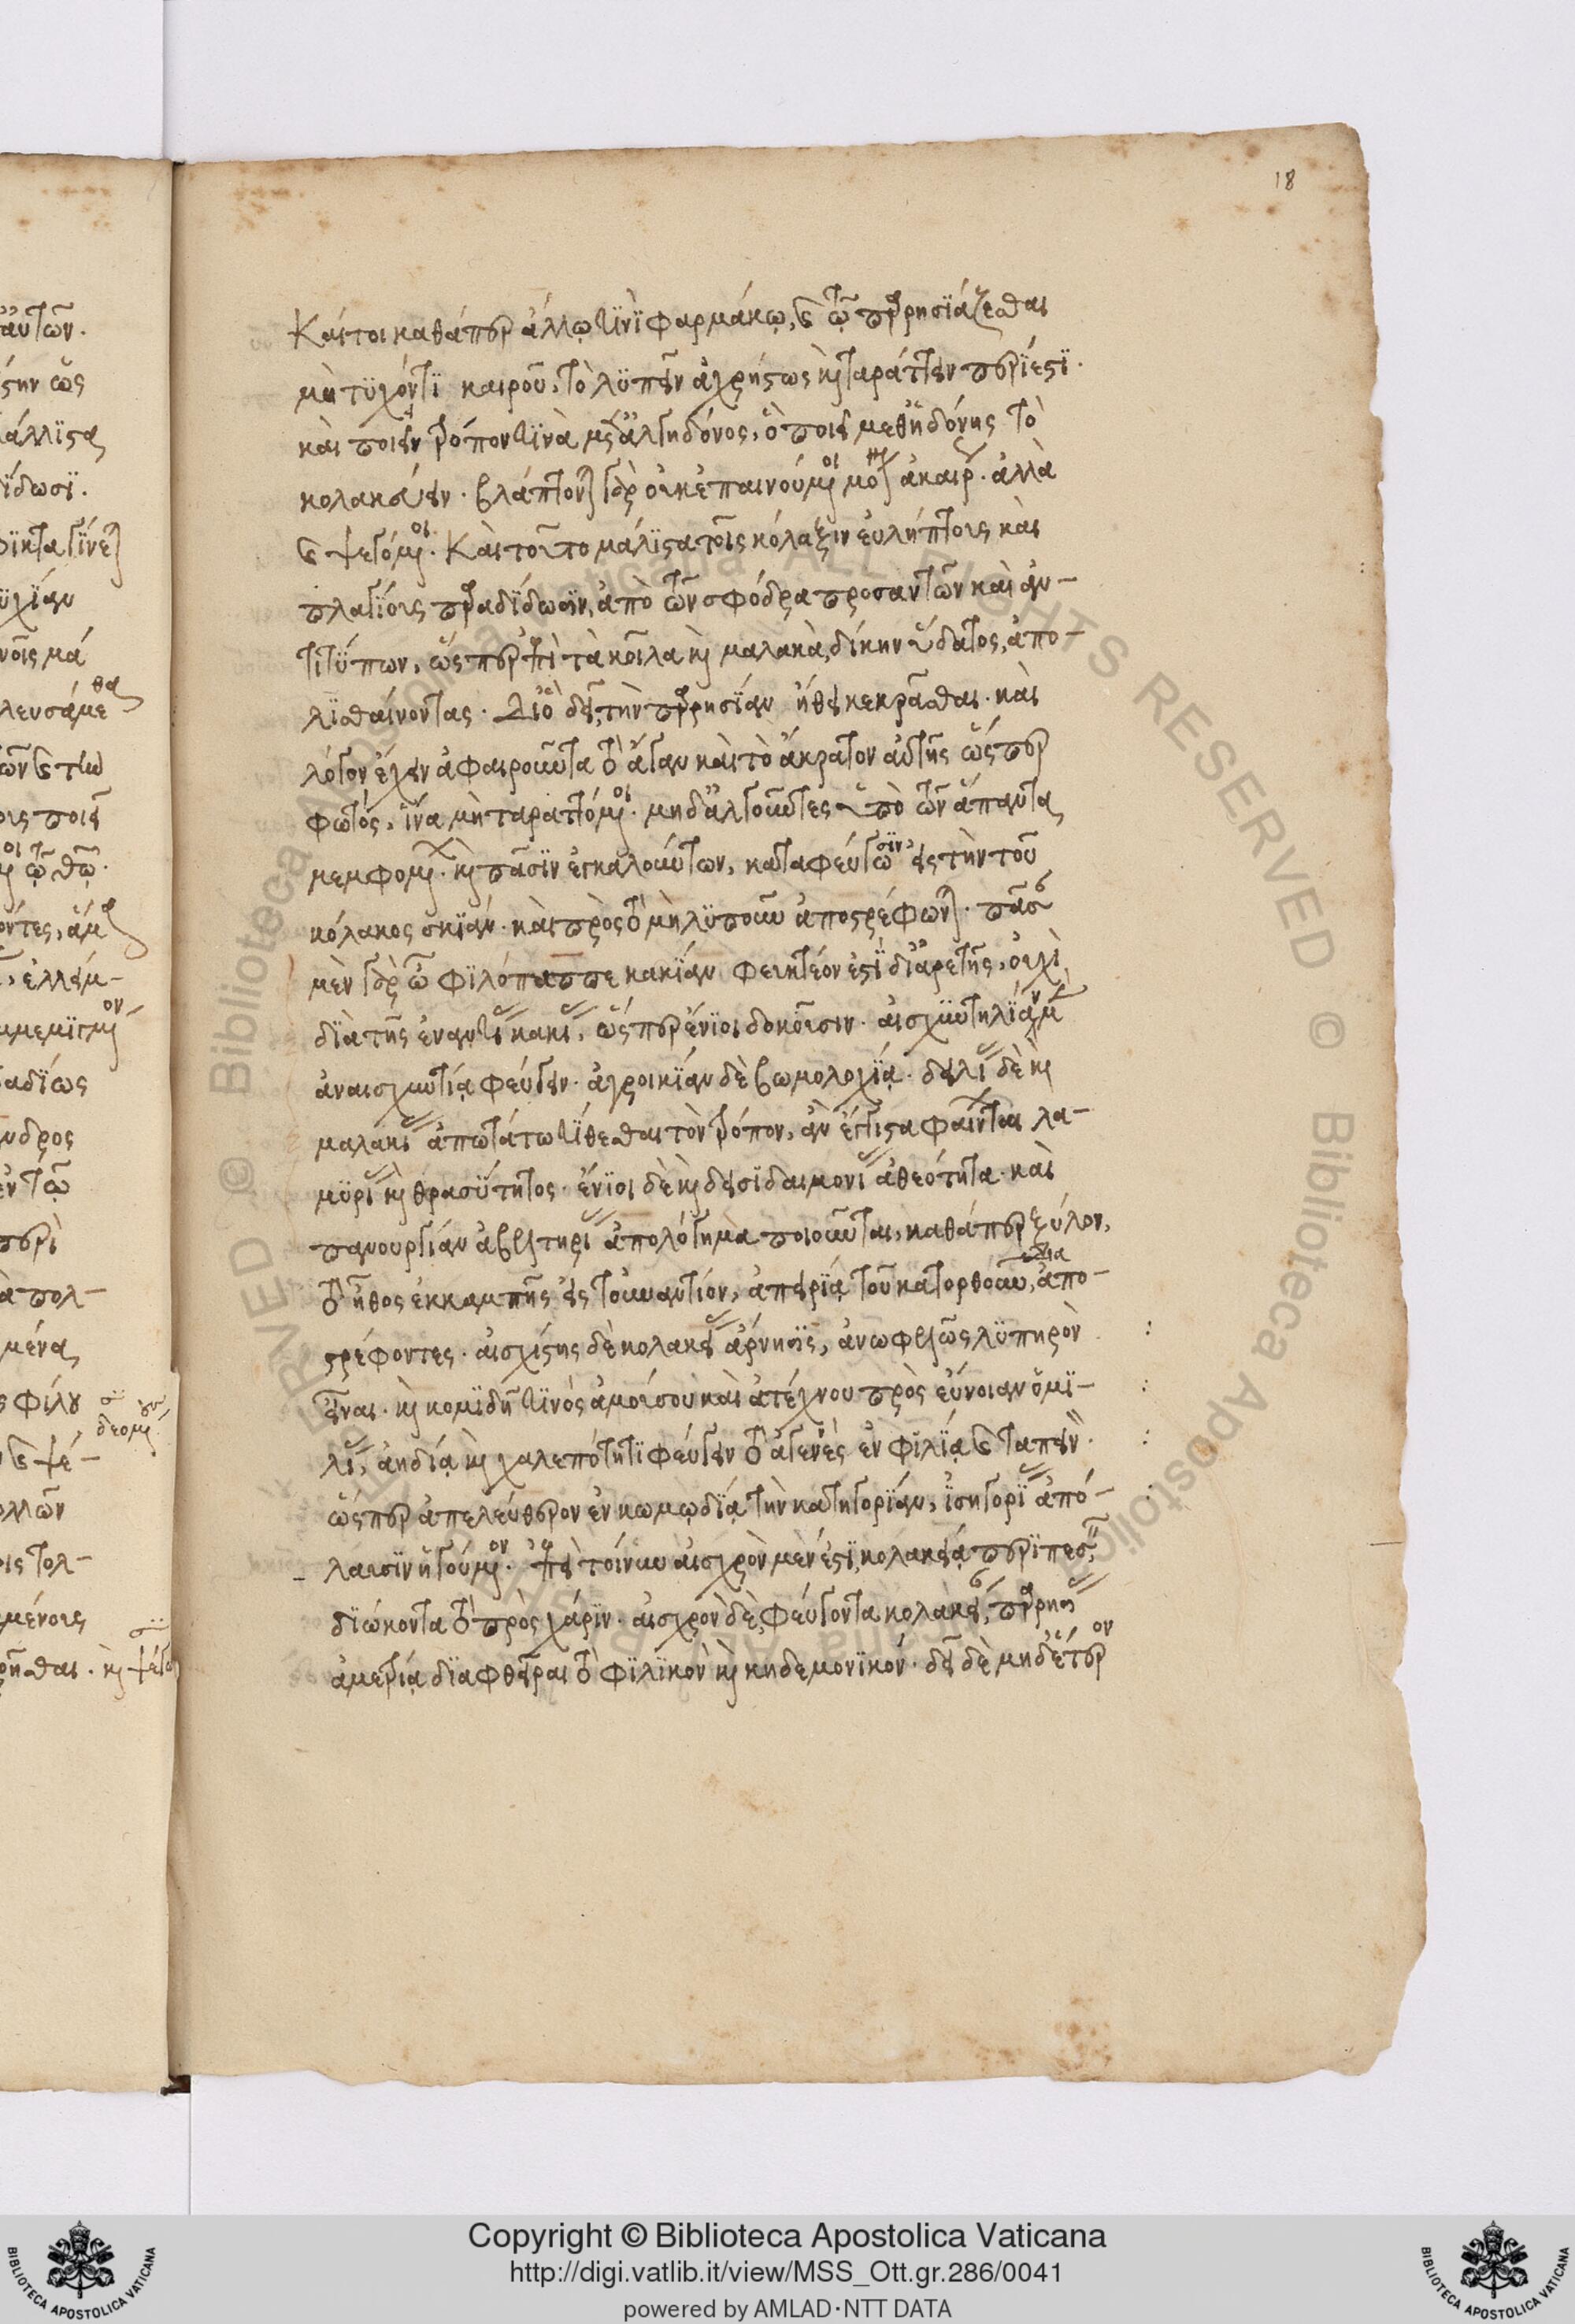 18
Καίτοι καθάπερ ἄλλῳ τινὶ φαρμάκῳ, καὶ τῷ παρρησιάζεσθαι
μὴ τυχόντι καιροῦ, τὸ λυπεῖν ἀχρήστως καὶ ταράττειν περίεστι.
καὶ ποιεῖν τρόπον τινὰ μετ' ἀλγηδόνος, ὃ ποιεῖ μεθ' ἡδονῆς τὸ
κολακεύειν. βλάπτονται γὰρ οὐκ ἐπαινούμενοι μόνον ἀκαίρως. ἀλλὰ
καὶ ψεγόμενοι. Καὶ τοῦτο μάλιστα τοῖς κόλαξιν εὐλήπτους καὶ
πλαγίους παραδίδωσιν, ἀπὸ τῶν σφόδρα προσαντῶν καὶ ἀν-
τιτύπων, ὥσπερ ἐπὶ τὰ κοῖλα καὶ μαλακὰ, δίκην ὕδατος, ἀπο-
λισθαίνοντας. Διὸ δεῖ, τὴν παρρησίαν ἤθει κεκρᾶσθαι. καὶ
λόγον ἔχειν ἀφαιροῦντα τὸ ἄγαν καὶ τὸ ἄκρατον αὐτῆς ὥσπερ
φωτός, ἵνα μὴ ταραττόμενοι. μηδ' ἀλγοῦντες ὑπὸ τῶν ἅπαντα
μεμφομένων. καὶ πᾶσιν ἐγκαλούντων, καταφεύγωσιν εἰς τὴν τοῦ
κόλακος σκιάν. καὶ πρὸς τὸ μὴ λυποῦν ἀποστρέφωνται. πᾶσαν
μὲν γὰρ ὦ φιλόπαππε κακίαν φευκτέον ἐστὶ δι' ἀρετῆς, οὐχὶ
διὰ τῆς ἐναντίας κακίας, ὥσπερ ἔνιοι δοκοῦσιν. αἰσχυντηλίαν μὲν
ἀναισχυντίᾳ φεύγειν. ἀγροικίαν δὲ βωμολοχίᾳ. δειλίας δὲ καὶ
μαλακίας ἀπωτάτω τίθεσθαι τὸν τρόπον, ἂν ἔγγιστα φαίνωνται λα-
μυρίας καὶ θρασύτητος. ἔνιοι δὲ καὶ δεισιδαιμονίας ἀθεότητα. καὶ
πανουργίαν ἀβελτηρίας ἀπολόγημα ποιοῦνται, καθάπερ ξύλον,
τὸ ἦθος ἐκ καμπῆς εἰς τοὐναντίον, ἀπειρίᾳ τοῦ κατορθοῦν, δια ἀπο-
στρέφοντες. αἰσχίστη δὲ κολακείας ἄρνησις, ἀνωφελῶς λυπηρὸν
εἶναι. καὶ κομιδῇ τινὸς ἀμούσου καὶ ἀτέχνου πρὸς εὔνοιαν ὁμι-
λίας, ἀηδίᾳ καὶ χαλεπότητι φεύγειν τὸ ἀγεννὲς ἐν φιλίᾳ καὶ ταπεινὸν.
ὥσπερ ἀπελεύθερον ἐν κωμῳδίᾳ τὴν κατηγορίαν, ἰσηγορίας ἀπό-
λαυσιν ἡγούμενον. ἐπεὶ τοίνυν αἰσχρὸν μὲν ἐστὶ, κολακείᾳ περιπεσεῖν,
διώκοντα τὸ πρὸς χάριν. αἰσχρὸν δὲ, φεύγοντα κολακείαν, παρρησίας
ἀμετρίᾳ διαφθεῖραι τὸ φιλικὸν καὶ κηδεμονικόν. δεῖ δὲ μηδέτερον